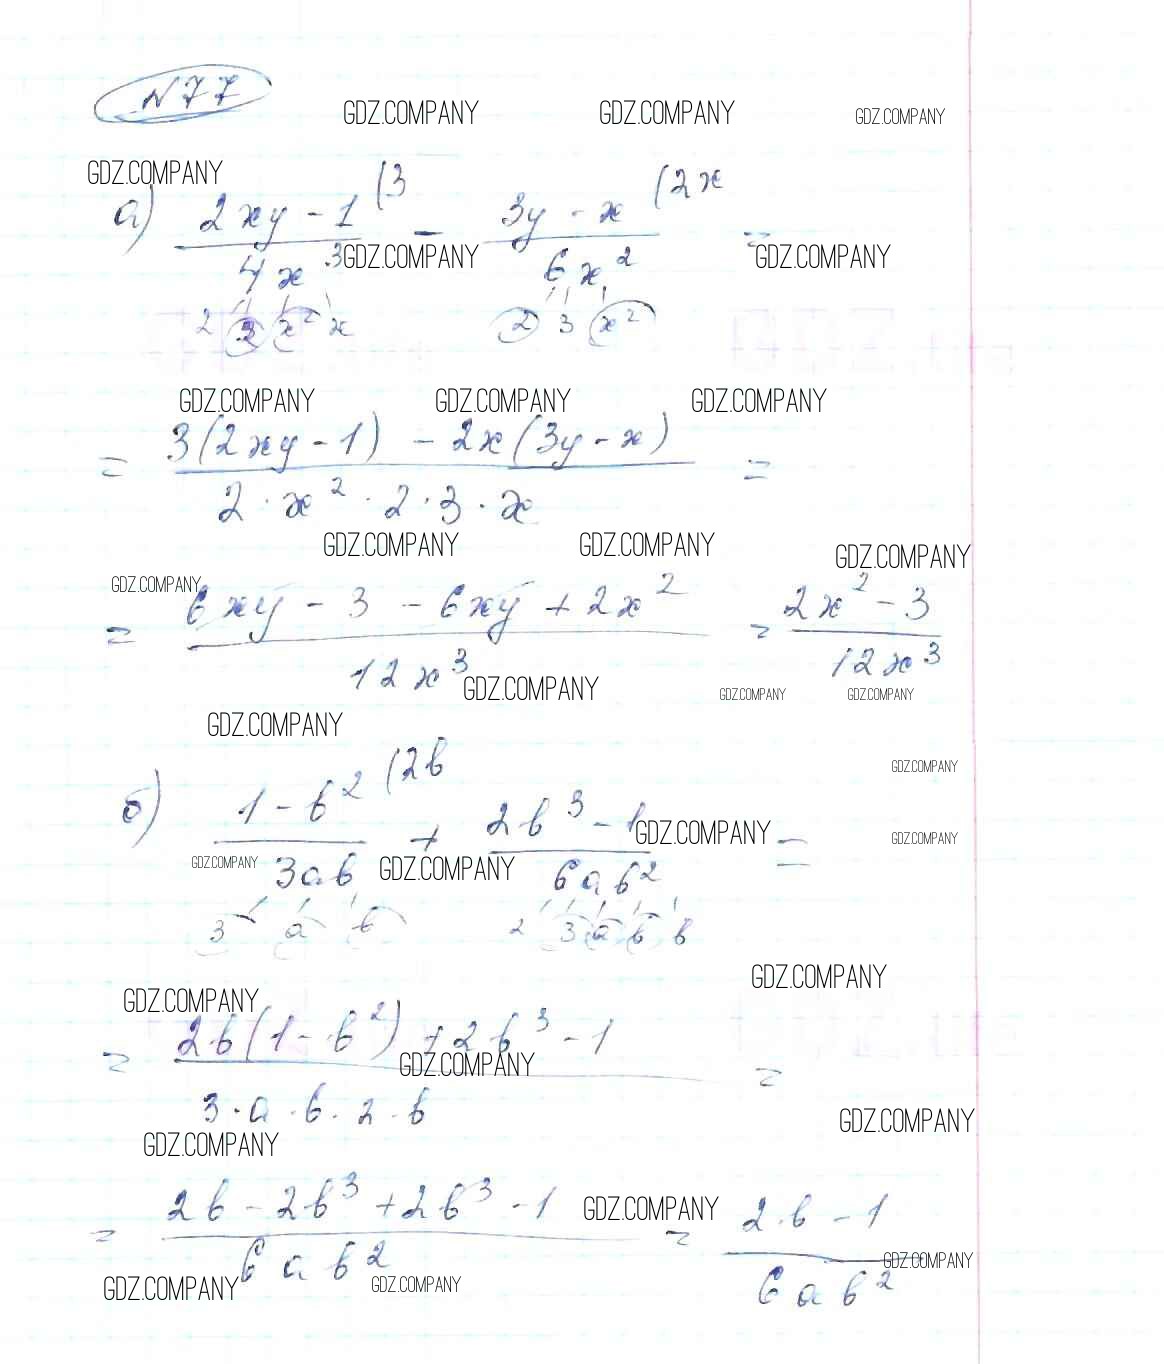 N77
GDZ.COMPANY GDZ.COMPANY GDZ.COMPANY
GDZ.COMPANY
а) (2xy - 1)/(4x³) (3 - (3y - x)/(6x²) (2x =
GDZ.COMPANY GDZ.COMPANY
2 2 x² x 2 3 x²
GDZ.COMPANY GDZ.COMPANY GDZ.COMPANY
= (3(2xy - 1) - 2x(3y - x))/(2 · x² · 2 · 3 · x) =
GDZ.COMPANY GDZ.COMPANY GDZ.COMPANY
GDZ.COMPANY
= (6xy - 3 - 6xy + 2x²)/(12x³) = (2x² - 3)/(12x³)
GDZ.COMPANY GDZ.COMPANY GDZ.COMPANY
GDZ.COMPANY
GDZ.COMPANY
б) (1 - b²)/(3ab) (2b + (2b³ - 1)/(6ab²) =
GDZ.COMPANY GDZ.COMPANY
GDZ.COMPANY GDZ.COMPANY
3 a b 2 3 a b b
GDZ.COMPANY
GDZ.COMPANY
= (2b(1 - b²) + 2b³ - 1)/(3 · a · b · 2 · b) =
GDZ.COMPANY
GDZ.COMPANY
GDZ.COMPANY
= (2b - 2b³ + 2b³ - 1)/(6ab²) = (2b - 1)/(6ab²)
GDZ.COMPANY
GDZ.COMPANY
GDZ.COMPANY GDZ.COMPANY